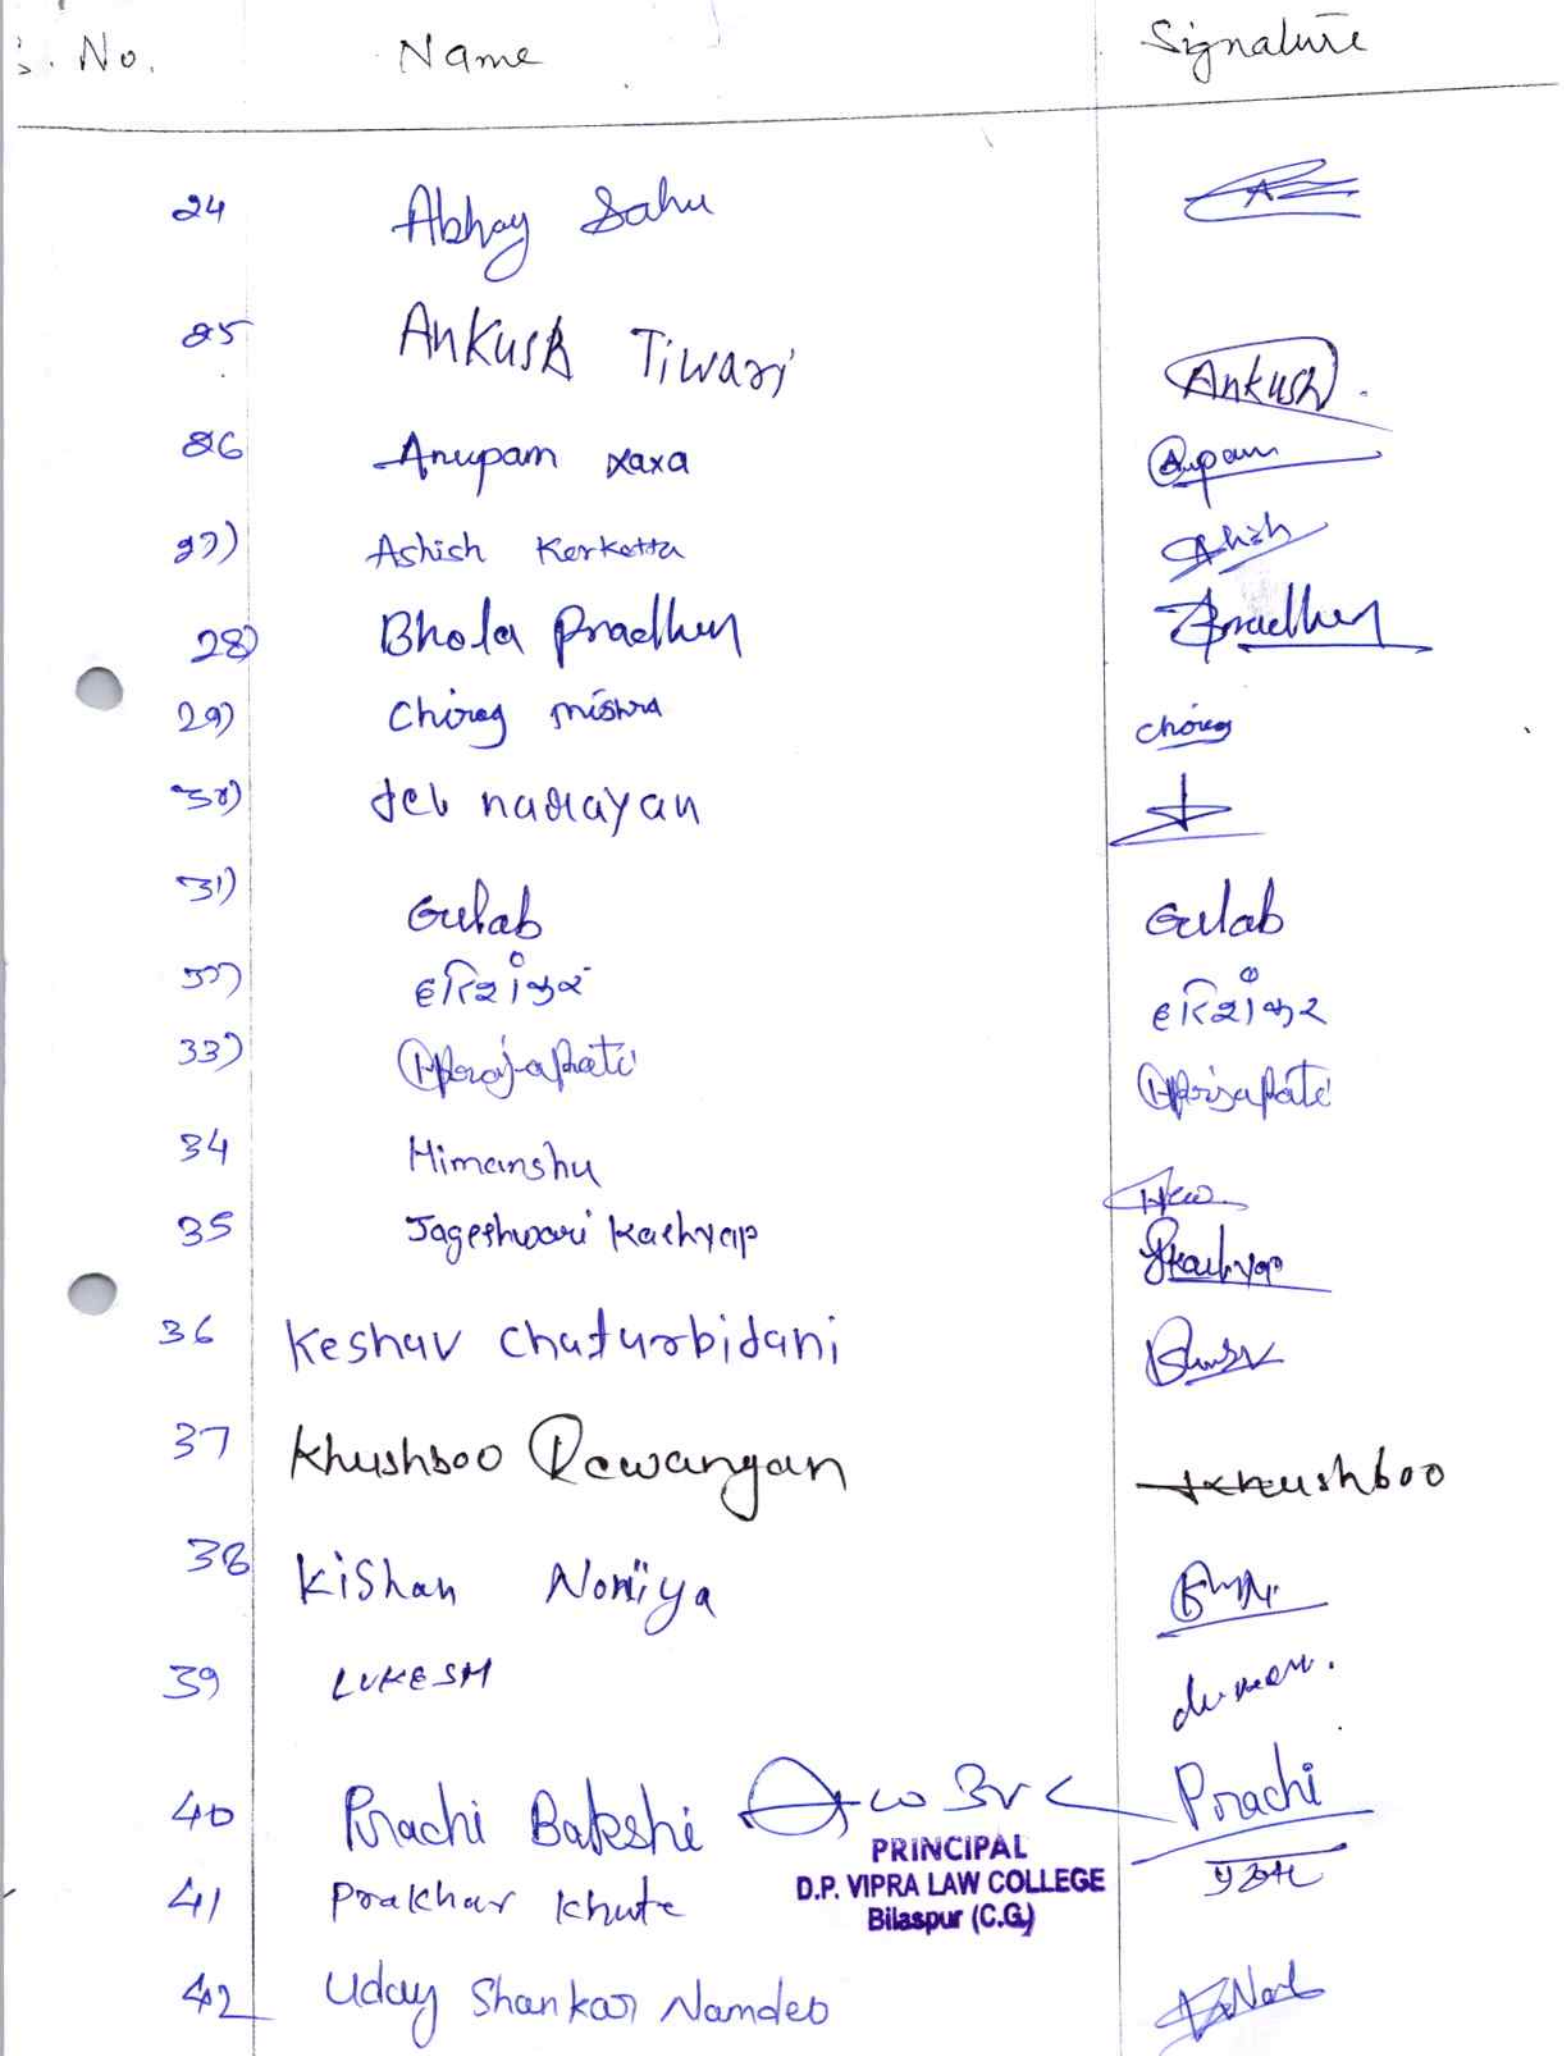 S. No. Name Signature
24 Abhay Sahu
25 Ankush Tiwari Ankush
26 Anupam xaxa Anupam
27) Ashish Kerketta Ashish
28) Bhola Pradhan Pradhan
29) Chirag mishra Chirag
30) deb narayan
31) Gulab Gulab
32) हरिशंकर हरिशंकर
33) Prajapati Prajapati
34 Himanshu
35 Jageshwari Kashyap JKashyap
36 Keshav Chaturbidani
37 Khushboo Dewangan Khushboo
38 Kishan Noniya
39 LUKESH
40 Prachi Bakshi Prachi
PRINCIPAL
D.P. VIPRA LAW COLLEGE
41 Prakhar Khute प्रखर
Bilaspur (C.G.)
42 Uday Shankar Namdeo